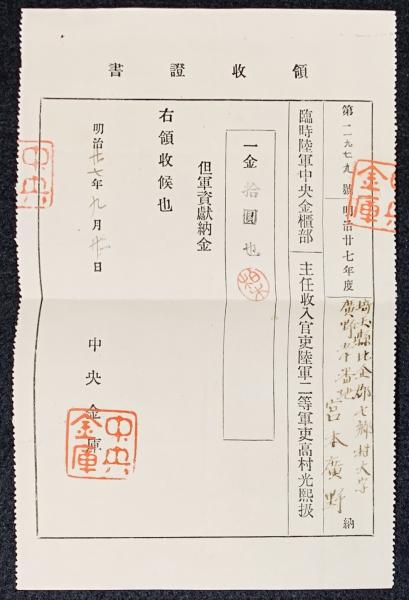 領收證書
第一一九七九號 明治廿七年度
埼玉縣比企郡七鄕村大字
廣野
宮本廣野 納
臨時陸軍中央金櫃部 主任收入官吏陸軍二等軍吏高村光熙扱
一金拾圓也
但軍資獻納金
右領收候也
明治廿七年九月廿日
中央金庫
中央金庫
中央
中央金庫